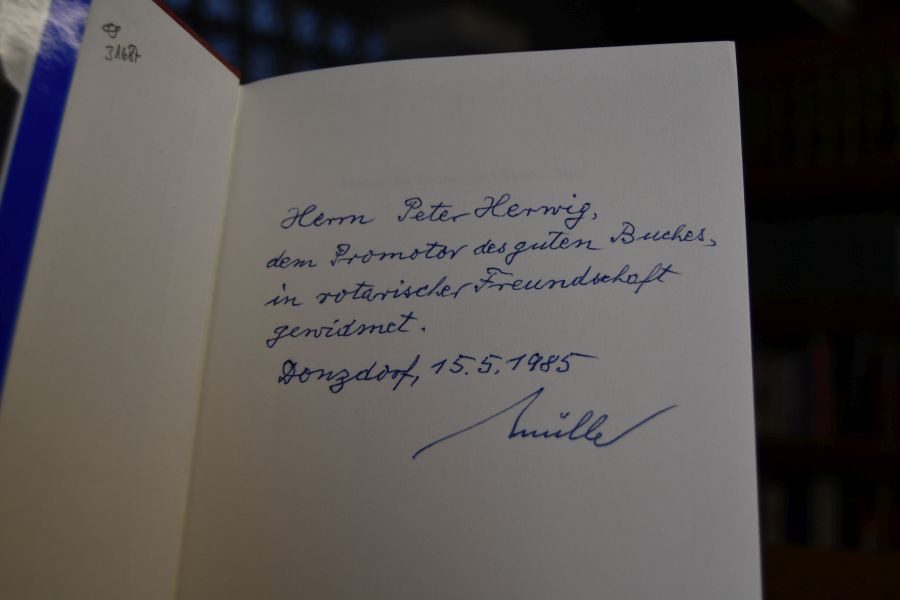 Herrn Peter Herwig,
dem Promotor des guten Buches,
in rotarischer Freundschaft
gewidmet.
Donzdorf, 15.5.1985
Müller